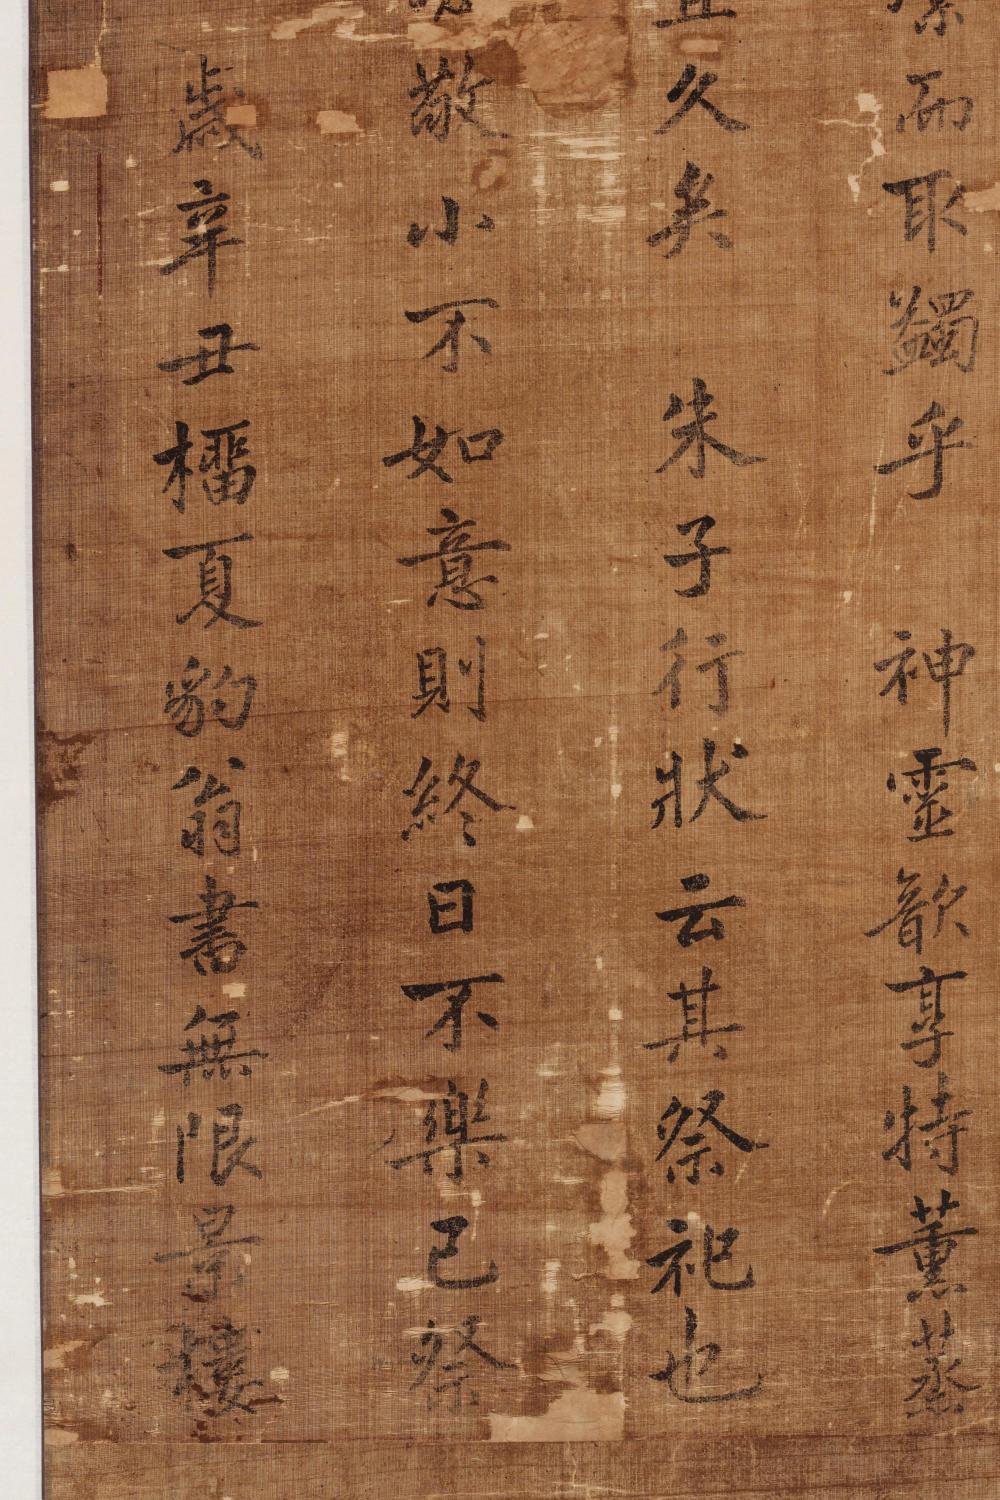 而取蠲乎　神靈歆享特薫蒸
且久矣　朱子行狀云其祭祀也
敬小不如意則終日不樂已祭
歲辛丑榴夏豹翁書無限景樓